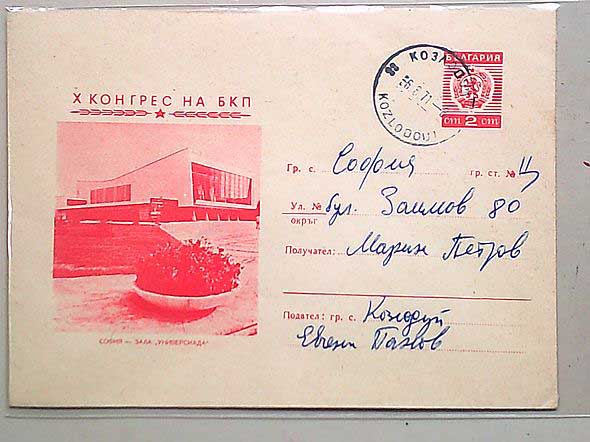 X КОНГРЕС НА БКП
СОФИЯ — ЗАЛА „УНИВЕРСИАДА"
КОЗЛОДУЙ
KOZLODOUI
БЪЛГАРИЯ
ст 2 ст
Гр. с. София гр. ст. № Ц
Ул. № бул. Заимов 80
окръг
Получател: Марин Петров
Подател: гр. с. Козлодуй
Евгени